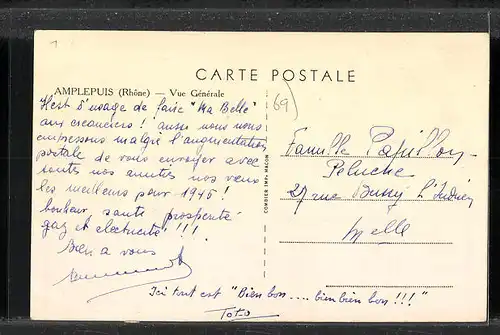 CARTE POSTALE
AMPLEPUIS (Rhône) — Vue Générale
69
Il est d'usage de faire "Ma Belle"
aux créanciers! aussi nous nous
empressons malgré l'augmentation
postale de vous envoyer avec
toutes nos amitiés nos vœux
les meilleurs pour 1946!
bonheur santé prospérité
gaz et électricité!!!
Bien à vous
COMBIER IMP. MACON
Famille Papillon
Peluche
27 rue Bussy L'Indien
Melle
Ici tout est "Bien bon.... bien bien bon!!!"
Toto